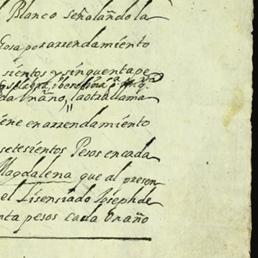 l Blanco señalando la
Cosa por arrendamiento
sientos y sinquenta pe
da Un año, la otra llama
iene en arrendamiento
setesientos Pesos en cada
Magdalena que al presen
el Lisensiado Joseph de
nta pesos cada Un año